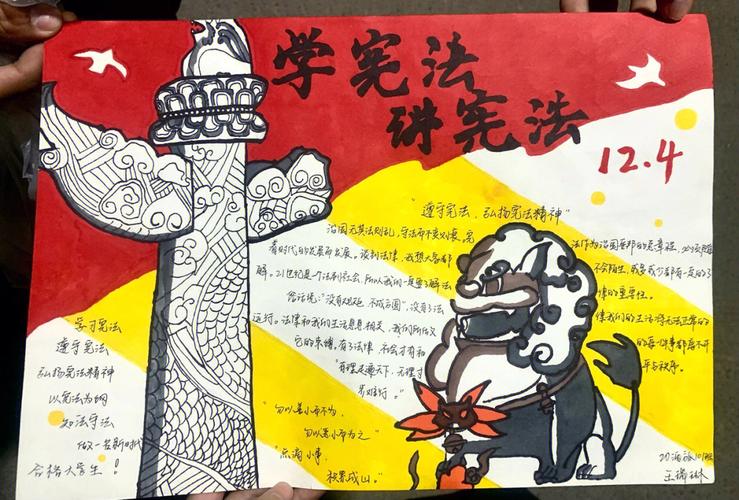 学宪法
讲宪法
12.4
"遵守宪法、弘扬宪法精神"
治国无其法则乱，守法而不变则衰。宪
法作为治国安邦的总章程，必须随
着时代的发展而发展。谈到法律，我想大家都
不会陌生，或多或少都有一定的了
解。21世纪是个法制社会，所以我们一定要了解法
律的重要性。
俗话说："没有规矩，不成方圆"，没有了法
律我们的生活将无法正常的
运行。法律和我们生活息息相关，我们所做
的每一件事都离不开
它的束缚，有了法律，社会才有和
平与秩序。
"有理走遍天下，无理寸
步难行。"
"勿以善小而不为，
勿以恶小而为之"
"点滴小事，
积累成山。"
学习宪法
遵守宪法
弘扬宪法精神
以宪法为纲
知法守法
做一名新时代
合格大学生！
王